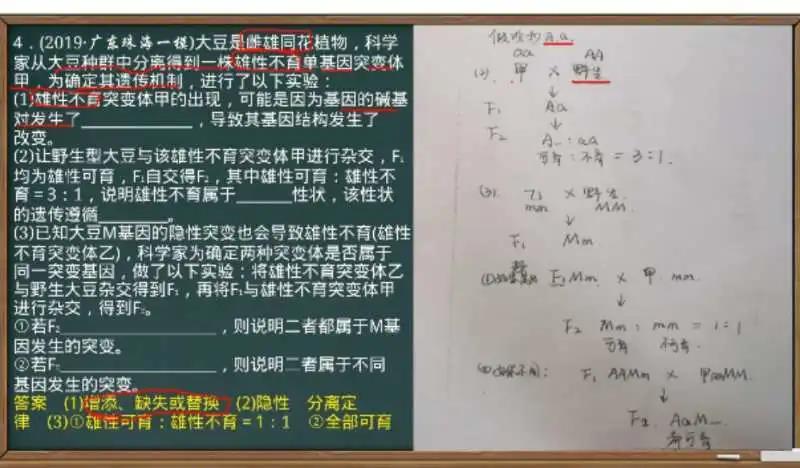 4．(2019·广东珠海一模)大豆是雌雄同花植物，科学
家从大豆种群中分离得到一株雄性不育单基因突变体
甲，为确定其遗传机制，进行了以下实验：
(1)雄性不育突变体甲的出现，可能是因为基因的碱基
对发生了____________，导致其基因结构发生了
改变。
(2)让野生型大豆与该雄性不育突变体甲进行杂交，F₁
均为雄性可育，F₁自交得F₂，其中雄性可育：雄性不
育＝3：1，说明雄性不育属于______性状，该性状
的遗传遵循________。
(3)已知大豆M基因的隐性突变也会导致雄性不育(雄性
不育突变体乙)，科学家为确定两种突变体是否属于
同一突变基因，做了以下实验：将雄性不育突变体乙
与野生大豆杂交得到F₁，再将F₁与雄性不育突变体甲
进行杂交，得到F₂。
①若F₂________________，则说明二者都属于M基
因发生的突变。
②若F₂________________，则说明二者属于不同
基因发生的突变。
答案 (1)增添、缺失或替换 (2)隐性 分离定
律 (3)①雄性可育：雄性不育＝1：1 ②全部可育
A.a.
aa AA
(2). 甲 × 野生
↓
F₁ Aa
↓
F₂ A_ : aa
可育 : 不育 = 3:1.
(3). 乙 × 野生
mm MM.
↓
F₁ Mm.
F₁ Mm × 甲 mm.
↓
F₂ Mm : mm = 1:1
可育 不育.
不同: F₁ AAMm × 甲aaMM.
↓
F₂. AaM_